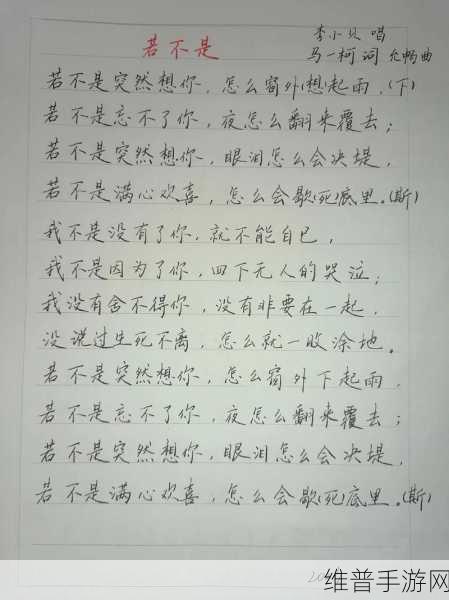 若不是
李小贝 唱
马一柯 词 允畅曲
若不是突然想你，怎么窗外(想)起雨，(下)
若不是忘不了你，夜怎么翻来覆去；
若不是突然想你，眼泪怎么会决堤，
若不是满心欢喜，怎么会歇(死)底里。(斯)
我不是没有了你，就不能自已，
我不是因为了你，四下无人的哭泣；
我没有舍不得你，没有非要在一起，
没说过生死不离，怎么就一败涂地。
若不是突然想你，怎么窗外下起雨，
若不是忘不了你，夜怎么翻来覆去；
若不是突然想你，眼泪怎么会决堤，
若不是满心欢喜，怎么会歇(死)底里。(斯)
维普手游网